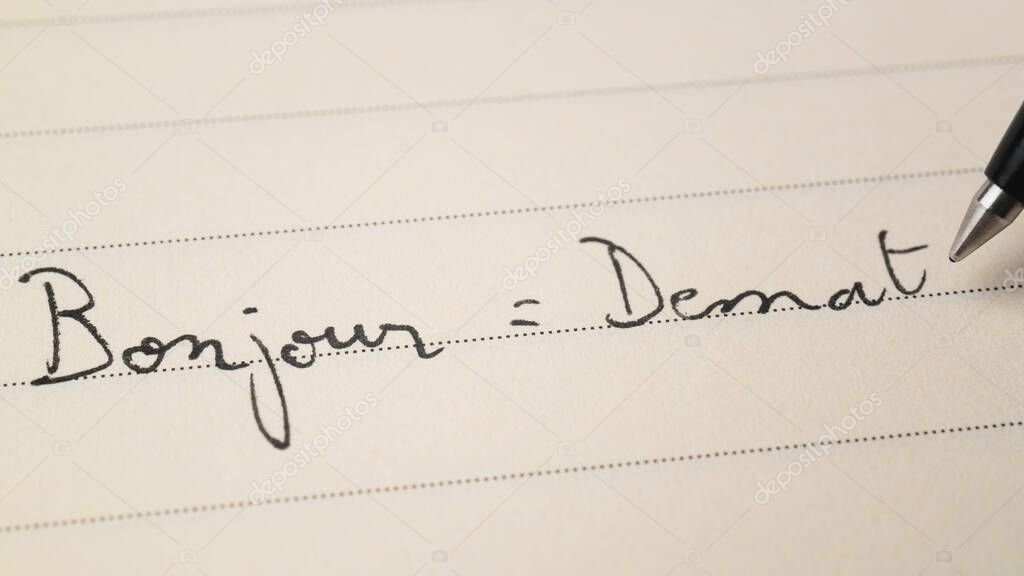 Bonjour = Demat
depositphotos
depositphotos
depositphotos
depositphotos
depositphotos
depositphotos
depositphotos